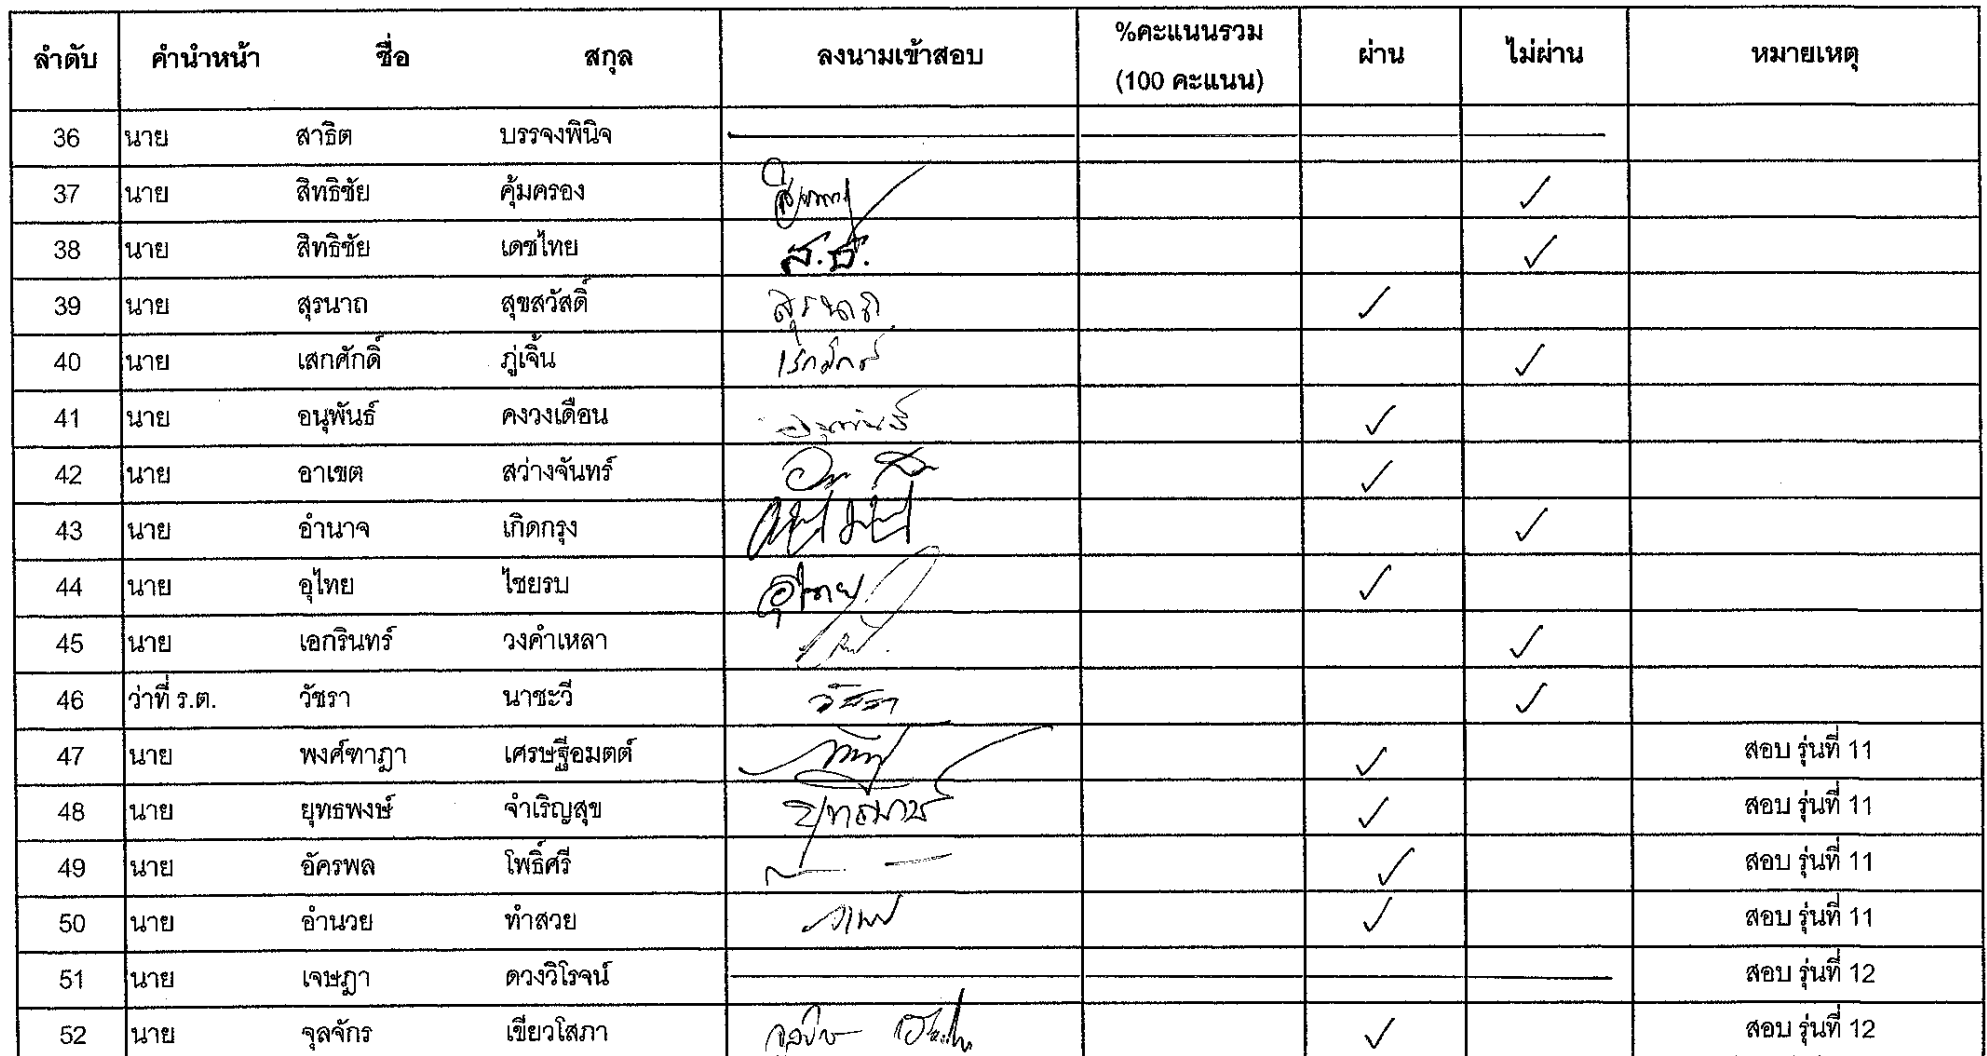 ลำดับ คำนำหน้า ชื่อ สกุล ลงนามเข้าสอบ %คะแนนรวม (100 คะแนน) ผ่าน ไม่ผ่าน หมายเหตุ
36 นาย สาธิต บรรจงพินิจ
37 นาย สิทธิชัย คุ้มครอง ✓
38 นาย สิทธิชัย เดชไทย ส.ธ. ✓
39 นาย สุรนาถ สุขสวัสดิ์ สุรนาถ ✓
40 นาย เสกศักดิ์ ภู่เจิ้น ✓
41 นาย อนุพันธ์ คงวงเดือน อนุพันธ์ ✓
42 นาย อาเขต สว่างจันทร์ ✓
43 นาย อำนาจ เกิดกรุง ✓
44 นาย อุไทย ไชยรบ อุไทย ✓
45 นาย เอกรินทร์ วงคำเหลา ✓
46 ว่าที่ ร.ต. วัชรา นาชะวี วัชรา ✓
47 นาย พงศ์ฑาฎา เศรษฐีอมตต์ ✓ สอบ รุ่นที่ 11
48 นาย ยุทธพงษ์ จำเริญสุข ✓ สอบ รุ่นที่ 11
49 นาย อัครพล โพธิ์ศรี ✓ สอบ รุ่นที่ 11
50 นาย อำนวย ทำสวย ✓ สอบ รุ่นที่ 11
51 นาย เจษฎา ดวงวิโรจน์ สอบ รุ่นที่ 12
52 นาย จุลจักร เขียวโสภา ✓ สอบ รุ่นที่ 12